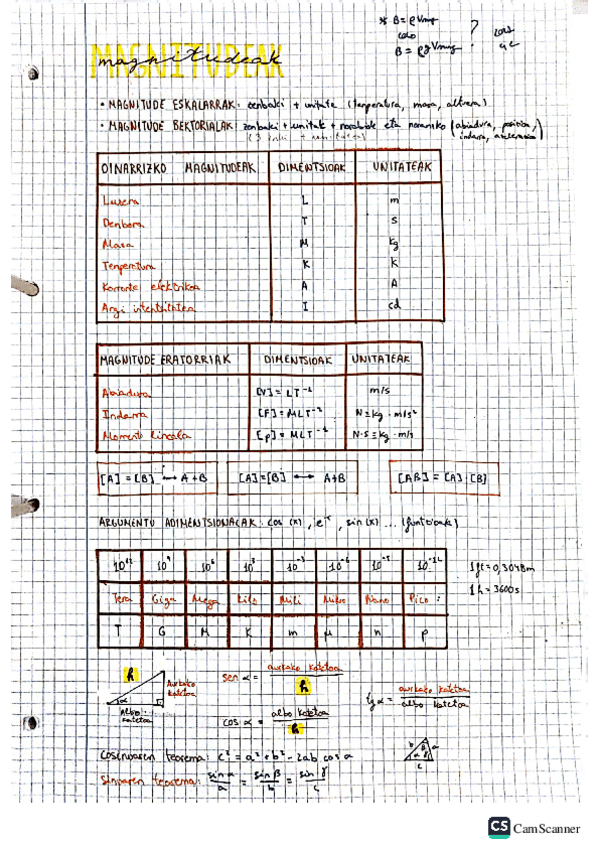 * B = ρVmg
B = ρgVmg
?
MAGNITUDEAK
magnitudeak
• MAGNITUDE ESKALARRAK: zenbaki + unitate (tenperatura, masa, altuera)
• MAGNITUDE BEKTORIALAK: zenbaki + unitate + norabide eta noranzko (abiadura, posizioa, indarra, azelerazioa)
OINARRIZKO MAGNITUDEAK DIMENTSIOAK UNITATEAK
Luzera L m
Denbora T s
Masa M kg
Tenperatura K K
Korronte elektrikoa A A
Argi intentsitatea I cd
MAGNITUDE ERATORRIAK DIMENTSIOAK UNITATEAK
Abiadura [V] = LT⁻¹ m/s
Indarra [F] = MLT⁻² N≡kg·m/s²
Momentu lineala [p] = MLT⁻¹ N·s≡kg·m/s
[A] = [B] ↔ A+B [A]=[B] ↔ A+B [AB] = [A]·[B]
ARGUMENTU ADIMENTSIONALAK: cos (x), eˣ, sin (x) ... (funtzioak)
10¹² 10⁹ 10⁶ 10³ 10⁻³ 10⁻⁶ 10⁻⁹ 10⁻¹² 1 ft = 0,3048m
Tera Giga Mega Kilo Mili Mikro Nano Piko 1 h = 3600s
T G M K m μ n p
h
Aurkako katetoa
α
Albo katetoa
sen α = aurkako katetoa / h
tg α = aurkako katetoa / albo katetoa
cos α = albo katetoa / h
Cosinuaren teorema: c² = a² + b² - 2ab cos α
Sinuaren teorema: sin α / a = sin β / b = sin γ / c
CS CamScanner